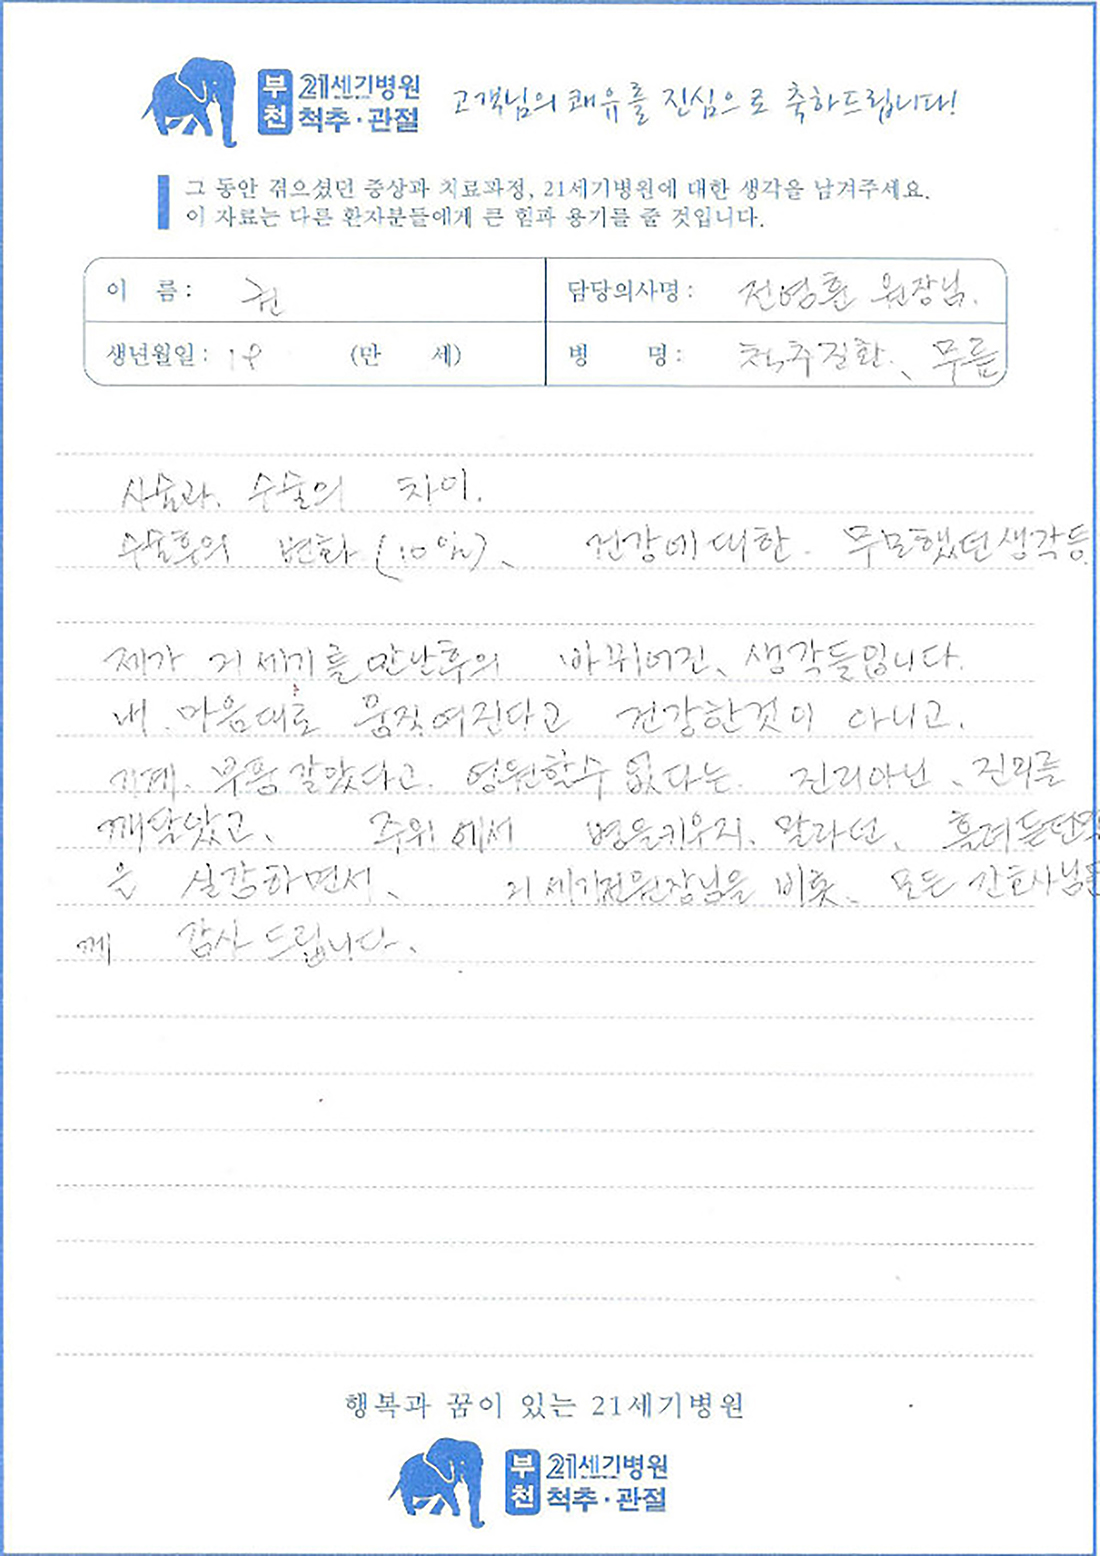 부천 21세기병원 척추·관절 고객님의 쾌유를 진심으로 축하드립니다!
그 동안 겪으셨던 증상과 치료과정, 21세기병원에 대한 생각을 남겨주세요.
이 자료는 다른 환자분들에게 큰 힘과 용기를 줄 것입니다.
이 름 : 권 담당의사명 : 전영훈 원장님.
생년월일 : 19 (만 세) 병 명 : 척추질환, 무릎
시술과, 수술의 차이.
수술후의 변화 (10일), 건강에 대한. 무모했던 생각등.
제가 21세기를 만난후의 바뀌어진, 생각들입니다.
내. 마음대로 움직여진다고 건강한것이 아니고.
기계. 부품 갈았다고. 영원할수 없다는. 진리아닌, 진리를
깨달았고, 주위에서 병을키우지. 말라던, 흘려듣던
을 실감하면서, 21세기전원장님을 비롯, 모든 간호사님들
께 감사 드립니다.
행복과 꿈이 있는 21세기병원
부천 21세기병원 척추·관절